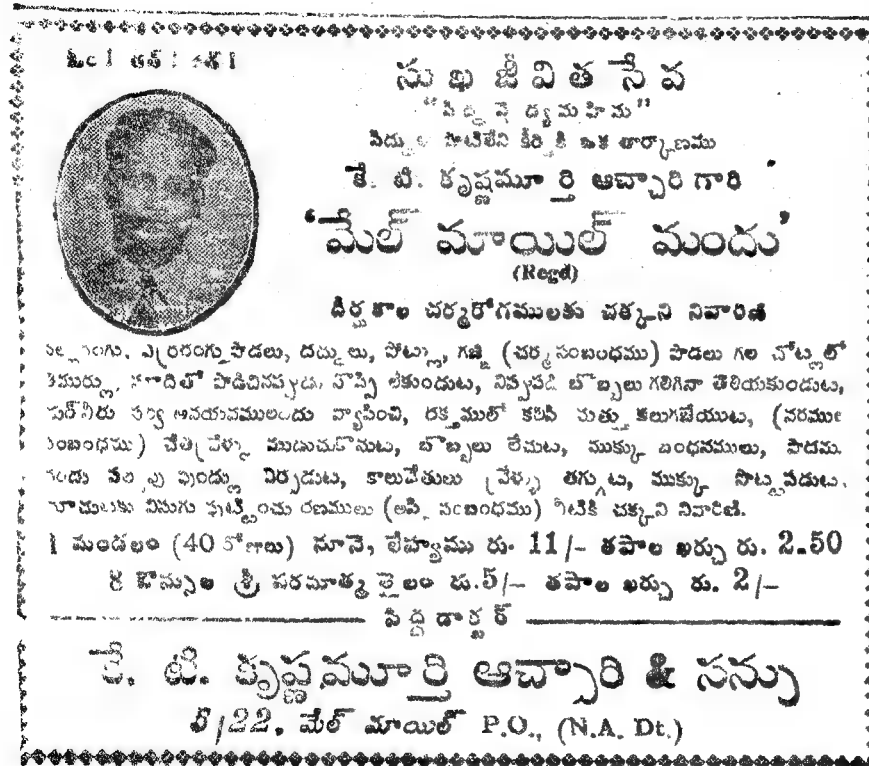 ఓం! తత్! సత్!
సుఖ జీవిత సేవ
"సిద్ధ వైద్య మహిమ"
సిద్ధుల సాటిలేని కీర్తికి ఒక తార్కాణము
కే. టి. కృష్ణమూర్తి ఆచ్చారి గారి
'మేల్ మాయిల్ మందు'
(Regd)
దీర్ఘకాల చర్మరోగములకు చక్కని నివారిణి
ఎర్రరంగు పొడలు, దద్దులు, పోట్లు, గజ్జి (చర్మ సంబంధము) పొడలు గల చోట్లలో
పొడిచినప్పుడు నొప్పి లేకుండుట, నిప్పుబడి బొబ్బలు గలిగినా తెలియకుండుట,
వ్యాపించి, రక్తములో కలిసి మత్తు కలుగజేయుట, (నరముల
సంబంధము) చేతి వ్రేళ్ళు ముడుచుకొనుట, బొబ్బలు లేచుట, ముక్కు బంధనములు, పాదము
పుండ్లు ఏర్పడుట, కాలుచేతులు వ్రేళ్ళు తగ్గుట, ముక్కు సొట్టపడుట,
విసుగు పుట్టించు రణములు (అస్థి సంబంధము) వీటికి చక్కని నివారిణి.
1 మండలం (40 రోజులు) నూనె, లేహ్యము రు. 11/- తపాల ఖర్చు రు. 2.50
8 ఔన్సుల శ్రీ పరమాత్మ తైలం రు.5/- తపాల ఖర్చు రు. 2/-
సిద్ధ డాక్టర్
కే. టి. కృష్ణమూర్తి ఆచ్చారి & సన్సు
5/22, మేల్ మాయిల్ P.O., (N.A. Dt.)